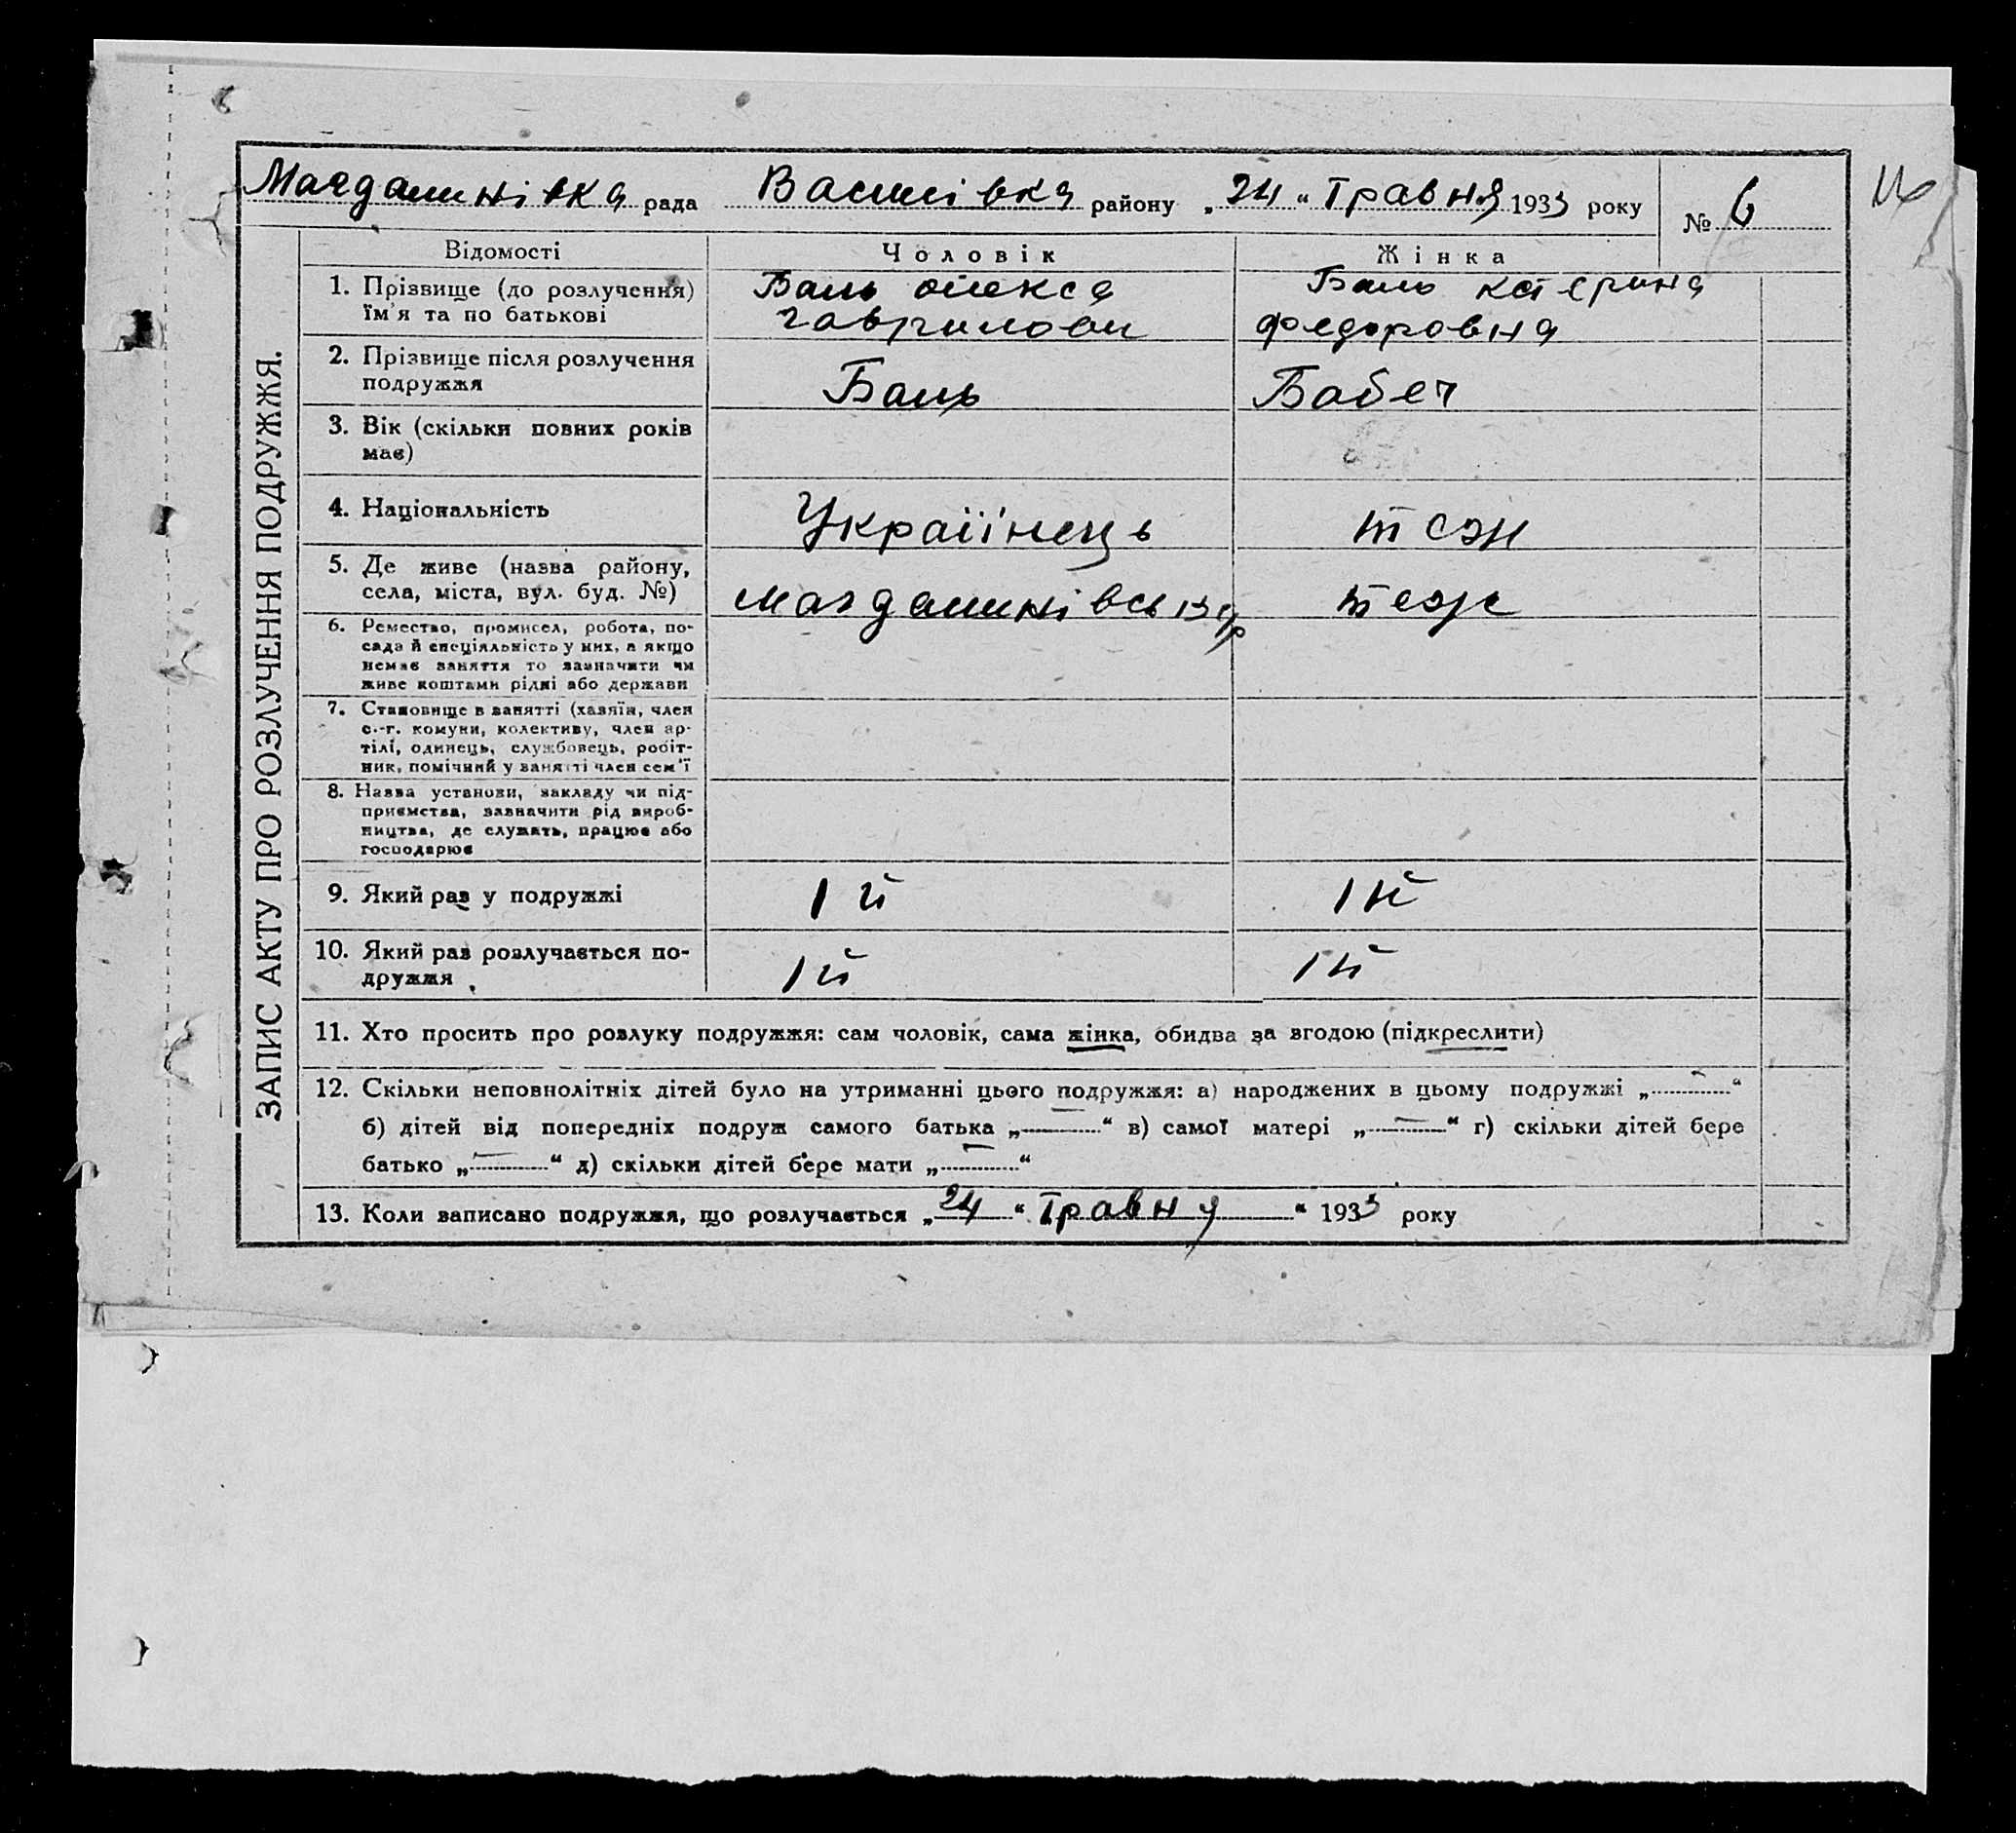 Магдалинівка рада Василівка району „24" Травня 1933 року № 6
ЗАПИС АКТУ ПРО РОЗЛУЧЕННЯ ПОДРУЖЖЯ.
Відомості Чоловік Жінка
1. Прізвище (до розлучення) Баль олекса Баль катерина
їм'я та по батькові гаврилови федоровна
2. Прізвище після розлучення
подружжя Баль Бабеч
3. Вік (скільки повних років
має)
4. Національність Україінець теж
5. Де живе (назва району,
села, міста, вул. буд. №) магдалинівсь теж
6. Ремество, промисел, робота, по-
сада й спеціяльність у них, а якщо
немає заняття то зазначити чи
живе коштами рідні або держави
7. Становище в занятті (хазяїн, член
с.-г. комуни, колективу, член ар-
тілі, одинець, службовець, робіт-
ник, помічний у занятті член сем'ї
8. Назва установи, закладу чи під-
приємства, зазначити рід вироб-
ництва, де служать, працює або
господарює
9. Який раз у подружжі 1й 1й
10. Який раз розлучається по-
дружжя 1й 1й
11. Хто просить про розлуку подружжя: сам чоловік, сама жінка, обидва за згодою (підкреслити)
12. Скільки неповнолітніх дітей було на утриманні цього подружжя: а) народжених в цьому подружжі „—"
б) дітей від попередніх подруж самого батька „—" в) самої матері „—" г) скільки дітей бере
батько „—" д) скільки дітей бере мати „—"
13. Коли записано подружжя, що розлучається „24" Травня " 1933 року